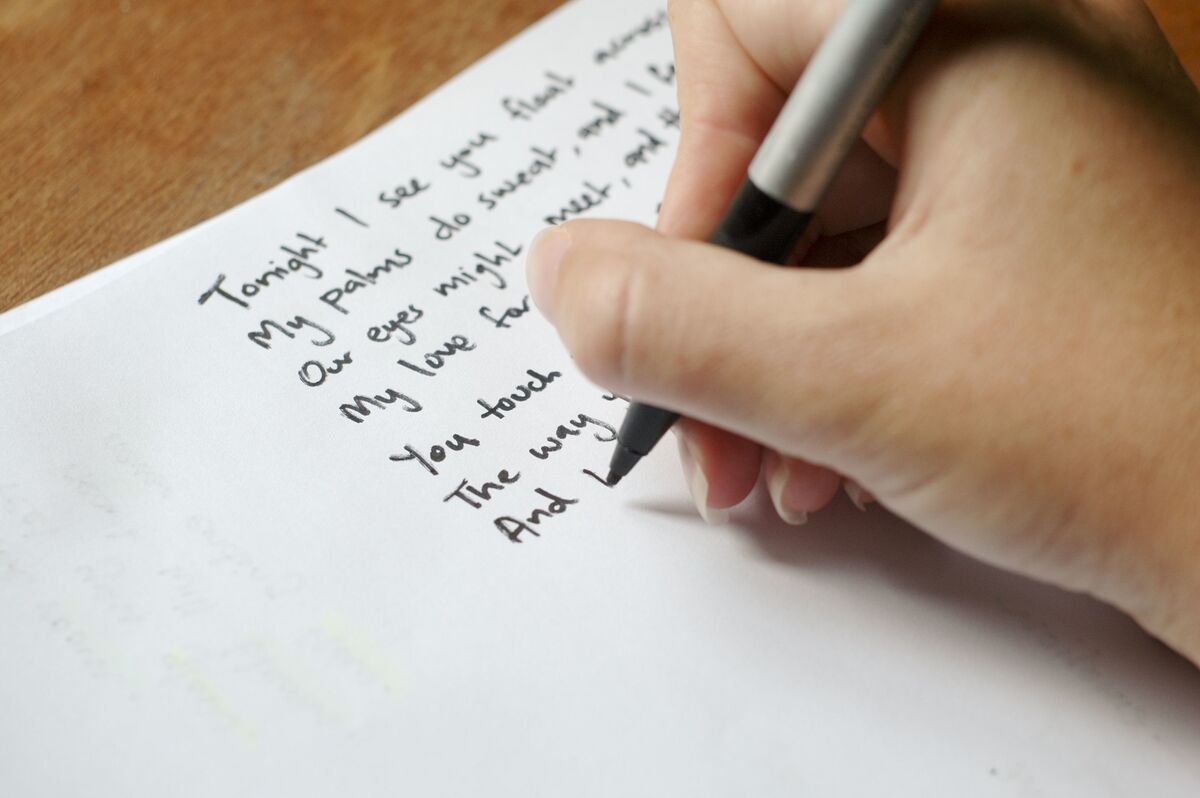 Tonight I see you float across
My palms do sweat, and I
Our eyes might meet, and
My love for
You touch
The way
And